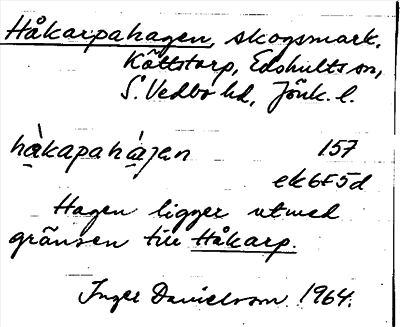 Håkarpahagen, skogsmark.
Kättstorp, Edshults sn,
S. Vedbo hd, Jönk. l.
hàkapahájan 157
ek6F5d
Hagen ligger utmed
gränsen till Håkarp.
Inger Danielsson 1964.